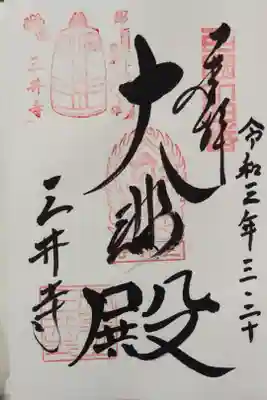 奉拝
令和三年三.二十
大悲殿
三井寺
三井寺